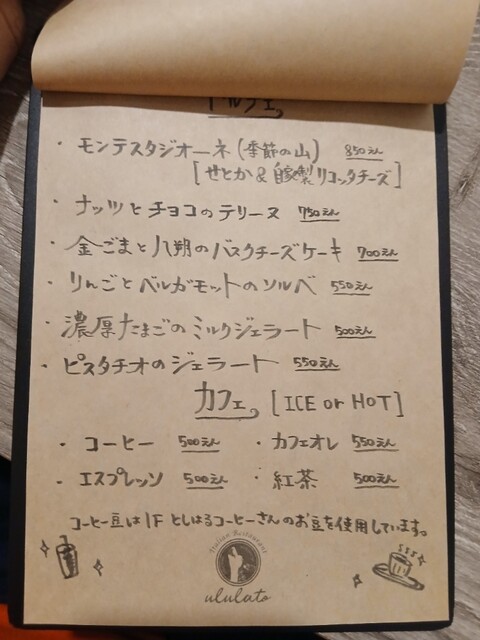 ドルチェ
・モンテスタジオーネ(季節の山) 850えん
[せとか&自家製リコッタチーズ]
・ナッツとチョコのテリーヌ 750えん
・金ごまと八朔のバスクチーズケーキ 700えん
・りんごとベルガモットのソルベ 550えん
・濃厚たまごのミルクジェラート 500えん
・ピスタチオのジェラート 550えん
カフェ [ICE or HOT]
・コーヒー 500えん ・カフェオレ 550えん
・エスプレッソ 500えん ・紅茶 500えん
コーヒー豆は1F としはるコーヒーさんのお豆を使用しています。
Italian Restaurant
ululato